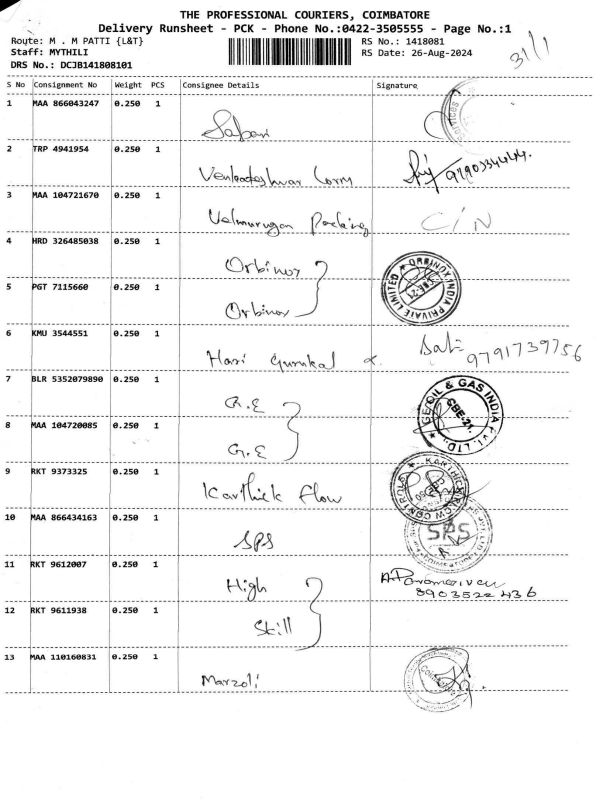 THE PROFESSIONAL COURIERS, COIMBATORE
Delivery Runsheet - PCK - Phone No.:0422-3505555 - Page No.:1
Route: M . M PATTI {L&T} RS No.: 1418081
Staff: MYTHILI RS Date: 26-Aug-2024
DRS No.: DCJB141808101
31/1
S No Consignment No Weight PCS Consignee Details Signature
1 MAA 866043247 0.250 1 Safari
2 TRP 4941954 0.250 1 Venkateshwar Corm
3 MAA 104721670 0.250 1 Velmurugan Packing CIN
4 HRD 326485038 0.250 1 Orbinox
ORBINOX INDIA PRIVATE LIMITED
CBE-21
5 PGT 7115660 0.250 1 Orbinox
6 KMU 3544551 0.250 1 Hari Gurukal 9791739756
7 BLR 5352079890 0.250 1 G.E
GE OIL & GAS INDIA PVT. LTD.
CBE-21.
8 MAA 104720085 0.250 1 G.E
9 RKT 9373325 0.250 1 Karthick Flow
KARTHICK FLOW CONTROLS
10 MAA 866434163 0.250 1 SPS
SPS
11 RKT 9612007 0.250 1 High
8903522436
12 RKT 9611938 0.250 1 Skill
13 MAA 110160831 0.250 1 Marzoli